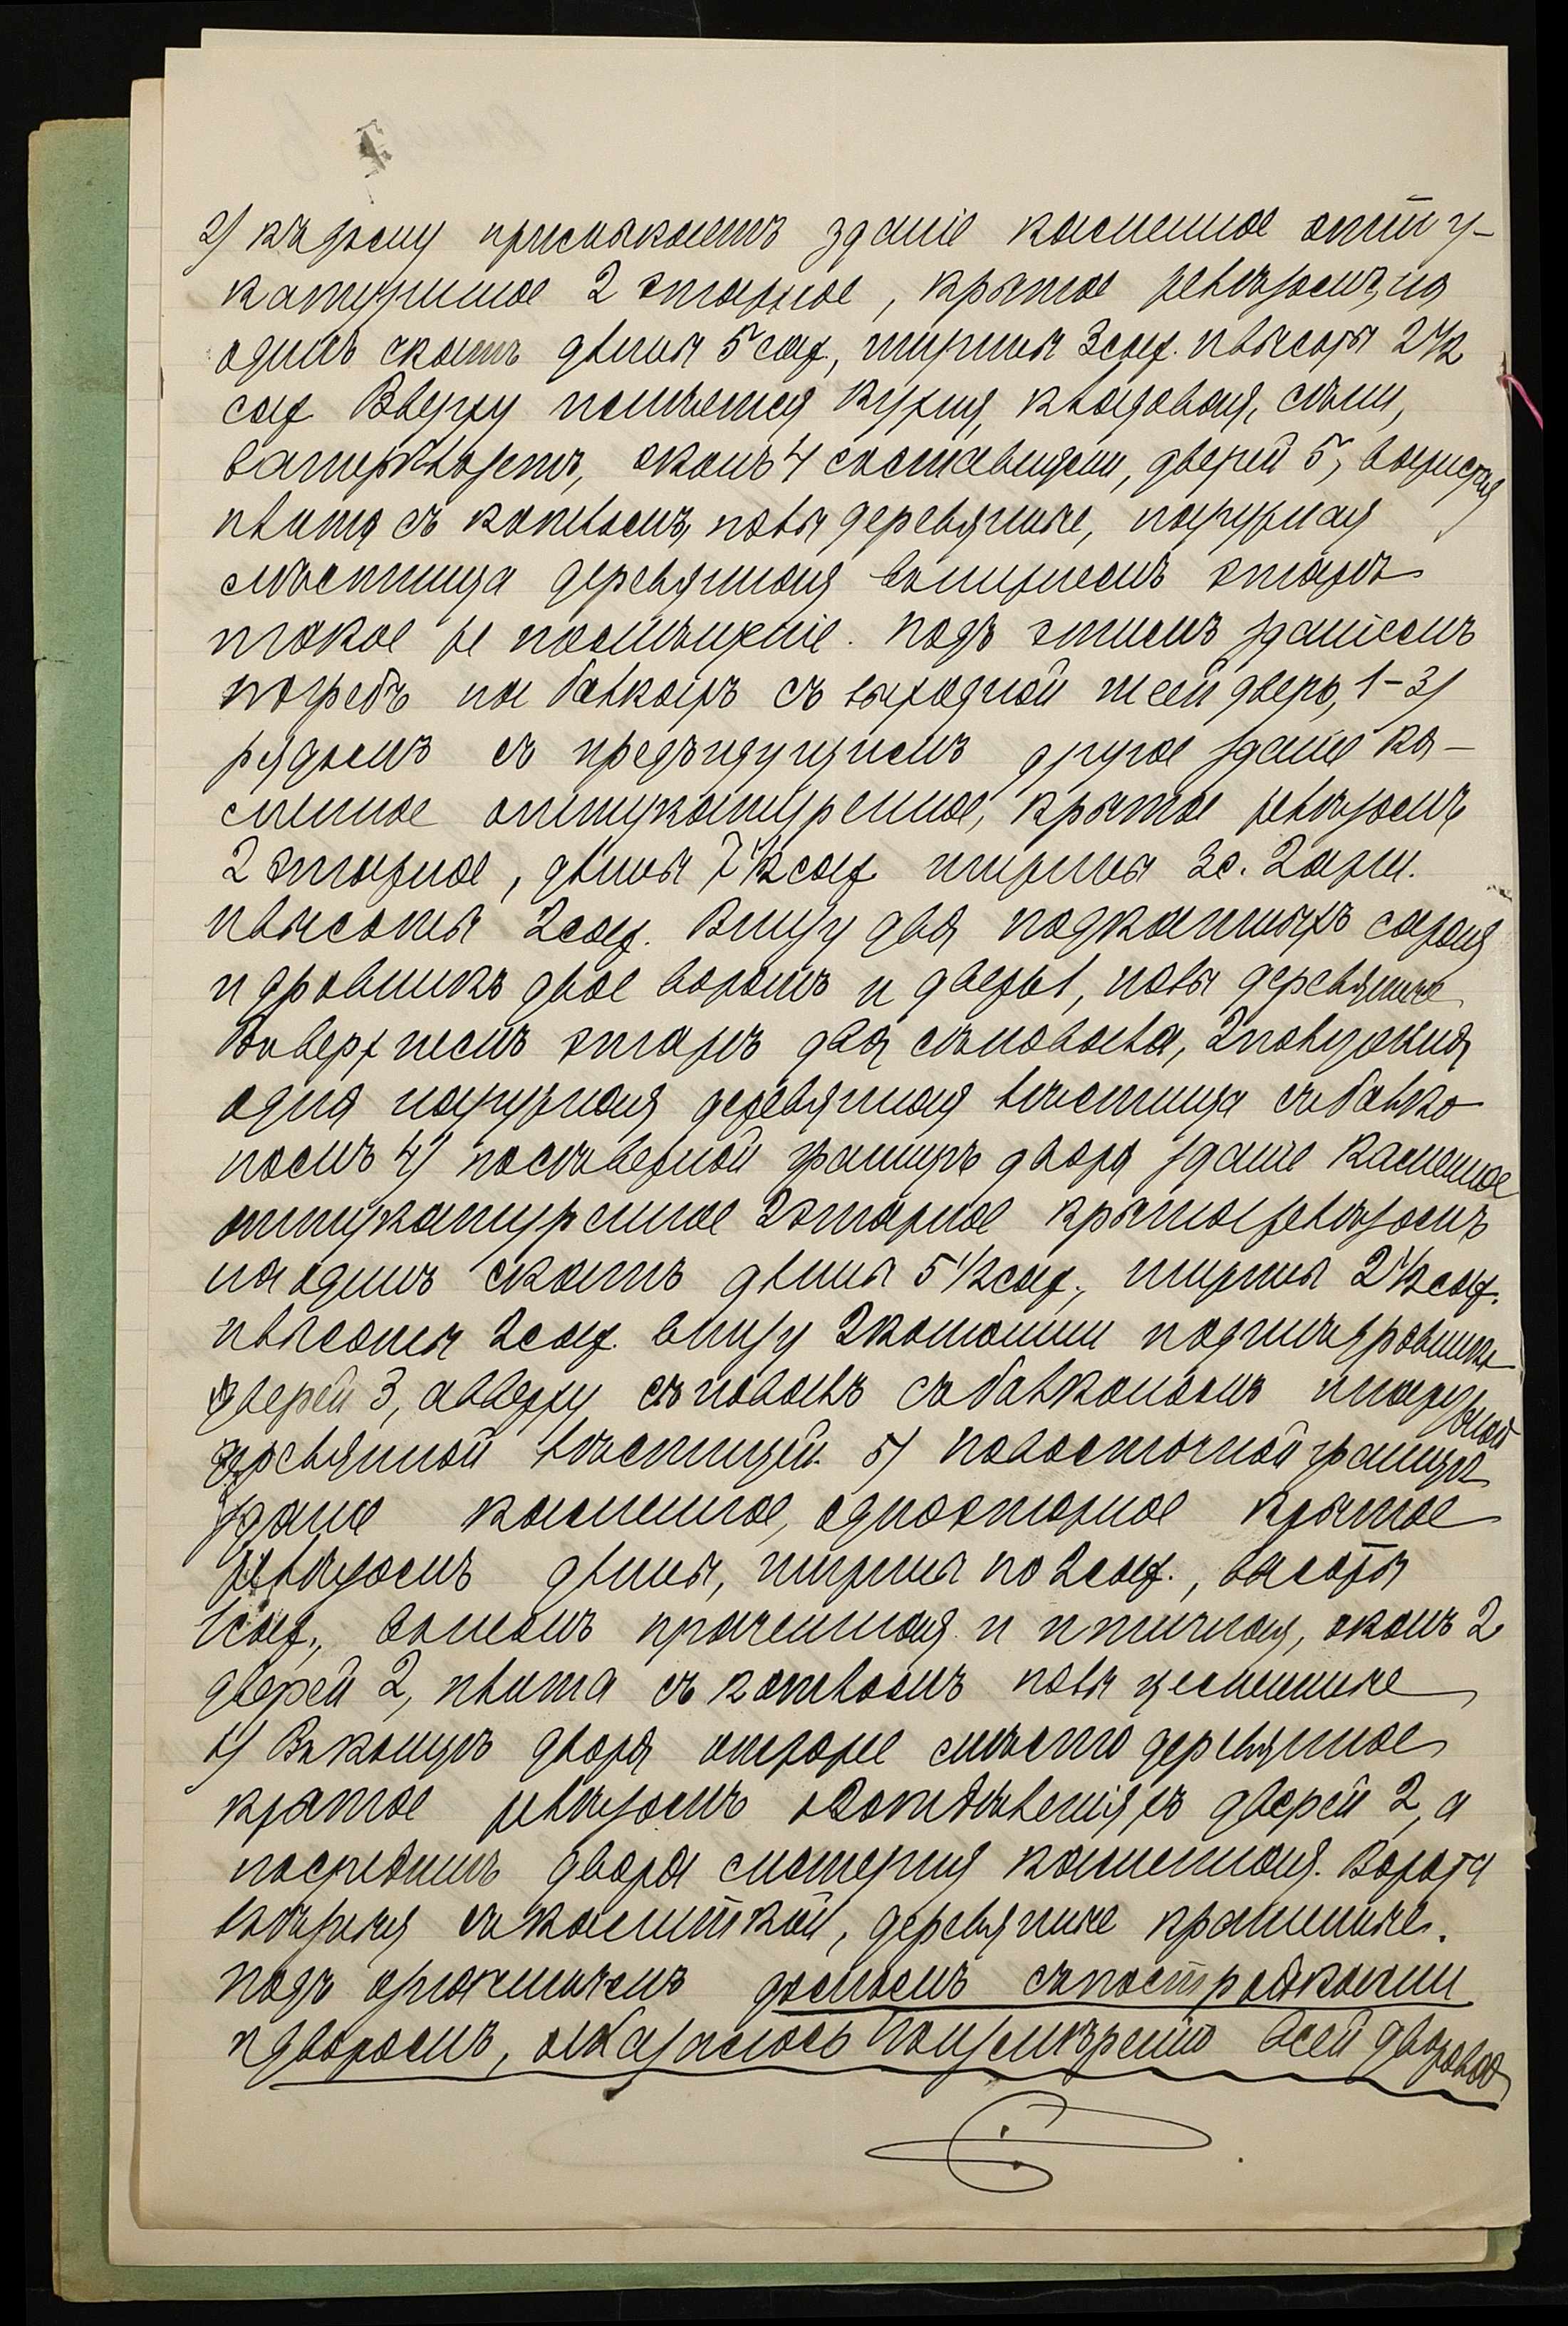 2) къ дому примыкаетъ зданіе каменное ошту-
катуренное 2 этажное, крытое желѣзомъ, на
одинъ скатъ длина 5 саж., ширина 3 саж. и высота 2 1/2
саж Вверху помѣщается кухня, кладовая, сѣни,
ватерклозетъ, оконъ 4 составными, дверей 5,
плита съ котломъ, полы деревянные, наружная
лѣстница деревянная въ нижнемъ этажѣ
такое же помѣщеніе. Подъ этимъ зданіемъ
погребъ на балкахъ съ выходной шеей дверь, 1-3)
рядомъ съ предъидущимъ другое зданіе ка-
менное оштукатуренное, крытое желѣзомъ
2 этажное, длина 7 1/2 саж ширина 3 с. 2 арш.
и высота 2 саж. Внизу два подкатныхъ сарая
и дровникъ двое воротъ и дверь 1, полы деревянные
Въ верхнемъ этажѣ два сѣновала, 2
одна наружная деревянная лѣстница съ балко
номъ 4) по сѣверной границѣ двора зданіе каменное
оштукатуренное 2 этажное крытое желѣзомъ
на одинъ скатъ длина 5 1/2 саж., ширина 2 1/2 саж.
и высота 2 саж. внизу 2 конюшни дровникъ
дверей 3, а вверху сѣновалъ съ балкономъ и наружной
деревянной лѣстницей. 5) по восточной границѣ
зданіе каменное, одноэтажное крытое
желѣзомъ длина, ширина по 2 саж., высота
1 саж., въ немъ прачешная и птичная, оконъ 2
дверей 2, плита съ котломъ полы цементные
6) Въ концѣ двора отхожее мѣсто деревянное
крытое желѣзомъ въ 2 отдѣленіяхъ дверей 2, а
посрединѣ двора цистерна каменная. Ворота
въѣзжія съ калиткой, деревянные крашенные.
Подъ домомъ съ постройками
и дворомъ, оказалось по измѣренію всей дворовой